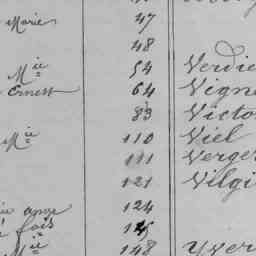 Marie 47
48
Mie 54 Verdie
Ernest 64 Vigne
83 Victo
Mie 110 Viel
111 Verger
121 Vilgi
124
fois 125
Mie 148 Yver